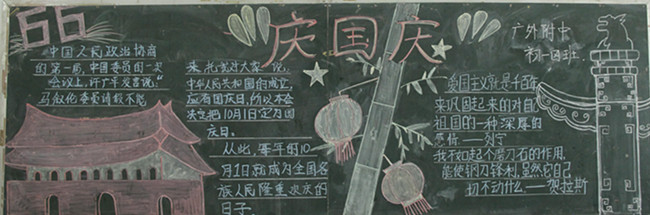 66
庆国庆
广外附中
初一四班
中国人民政治协商
的第一届,中国委员的一次
会议上,许广平发言说:"
马叙伦委员请假不能
来,托我对大家说,
中华人民共和国的成立,
应有国庆日,所以本会
决定把10月1日定为国
庆日。
从此,每年的10
月1日就成为全国各
族人民隆重欢庆的
日子。
爱国主义就是千百年
来巩固起来的对自己
祖国的一种深厚的
感情——列宁
我不如起个磨刀石的作用,
能使钢刀锋利,虽然它自己
切不动什么——贺拉斯